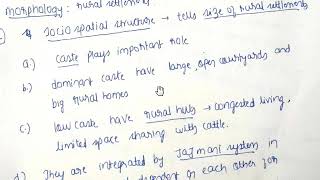 morphology: rural settlements
socio spatial structure → tells size of rural settlements
a.) caste plays important role
b.) dominant caste have large, open courtyards and
big rural homes
c.) low caste have rural huts → congested living,
limited space sharing with cattle.
d.) They are integrated by Jajmani system in
dependent on each other for